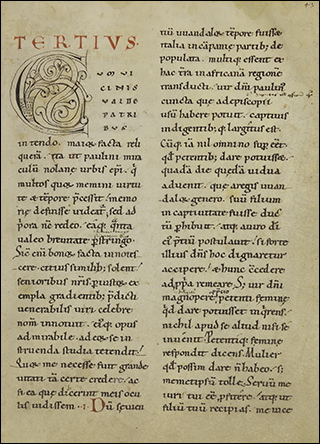 TERTIUS.
CUM VI
CINIS
VALDE
PATRI
BUS
intendo. maioꝝ facta reli
querā. ita ut paulini mira
culū nolane urbis epī. q̄
multos quoꝝ memini virtu
te & tēpore p̄cessit. memo
rie defuisse videat̄. sed ad
pora nē redeo. eaq; q̄nta
valeo breuitate ꝑstringo.
Sic̄ eni bonoꝝ facta innotes
cere. citius similib; solent.
senioribus nr̄is ꝑ iustoꝝ ex
empla gradientib; p̄dicti
venerabilis viri celebre
nom̄ innotuit. ei'q; opus
admirabile. ad eoꝝ se in
struenda studia tetendit.
Quoꝝ me necesse fuit grande
uitati tā certe credere. ac
si ea que dicerent meis ocu
lis vidissem. Dū seuien
tiū uuandaloꝝ tēpore fuiss&
italia in cāpanię partib; de
populata. multiq; essent ex
hac t̄ra in africanā regionē
transducti. uir dn̄i paulin'
cuncta que ad episcopii
usū habere potuit. captiuis
indigentib; q; largit' est.
Cūq; iā nil omnino sup eēt
qd̄ petentib; dare potuiss&.
quadā die quędā uidua
aduenit. que a regis uuan
daloꝝ genero. suū filium
in captiuitate fuisse duc
tū ꝑhibuit. atq;
ei' p̄tiū postulauit. si forte
illius dn̄s hoc dignaret̄
accipere. & hunc c̄cedere
ad ꝓpa remeare. S; uir dn̄i
magnopere petenti femine
qd̄ dare potuisset inq̄rens.
nichil apud se aliud nisi se
inuenit. Petentiq; femine
respondit dicens. Mulier
qd̄ possim dare n̄ habeo. s;
memetipsū tolle. Seruū me
iuris tui eē ꝓfitere. atq; ut
filiū tuū recipias. me uice